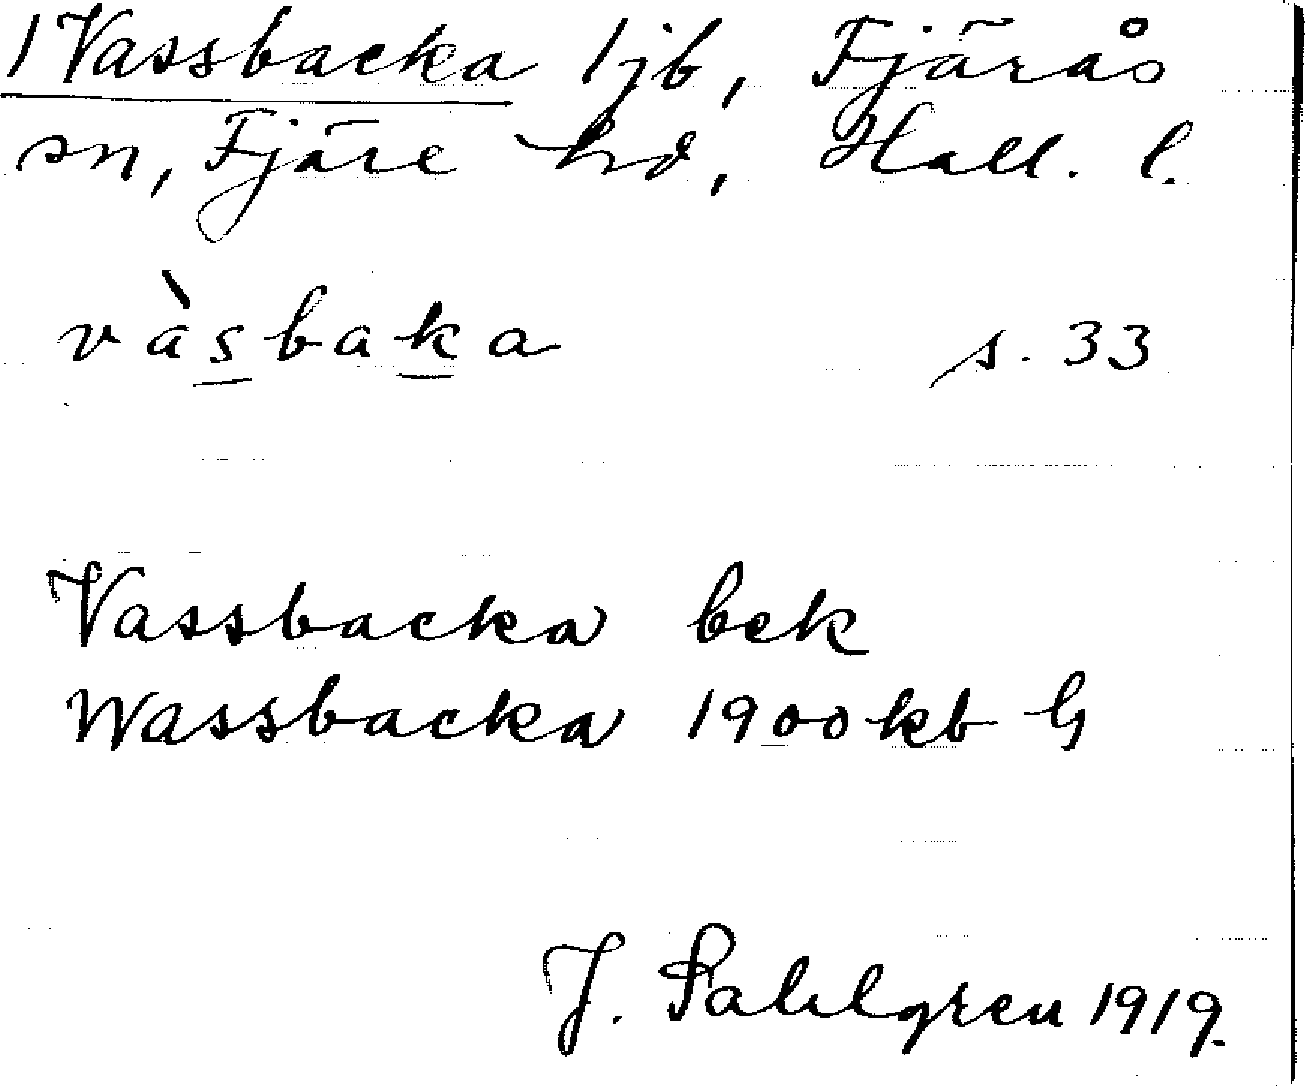 1 Vassbacka 1 jb, Fjärås
sn, Fjäre hd, Hall. l.
vàsbaka s. 33
Vassbacka bek
Wassbacka 1900 kb G
J. Sahlgren 1919.